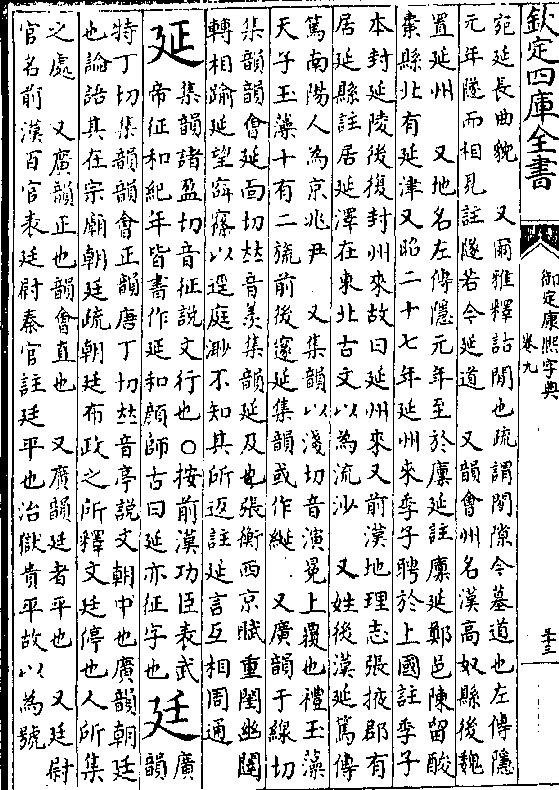 欽定四庫全書
御定康熙字典
卷九
宛延長曲貌　又爾雅釋詁閒也疏謂閒隙今墓道也左傳隱
元年隧而相見註隧若今延道　又韻會州名漢高奴縣後魏
置延州　又地名左傳隱元年至於廩延註廩延鄭邑陳留酸
棗縣北有延津又昭二十七年延州來季子聘於上國註季子
本封延陵後復封州來故曰延州來又前漢地理志張掖郡有
居延縣註居延澤在東北古文以為流沙　又姓後漢延篤傳
篤南陽人為京兆尹　又集韻以淺切音演冕上覆也禮玉藻
天子玉藻十有二旒前後邃延集韻或作綖　又廣韻于線切
集韻韻會延面切𠀤音羨集韻延及也張衡西京賦重閨幽闥
轉相踰延望𥥍窱以逕庭渺不知其所返註延言互相周通
𨒌集韻諸盈切音征說文行也○按前漢功臣表武
帝征和紀年皆書作延和顔師古曰延亦征字也　廷廣韻
特丁切集韻韻會正韻唐丁切𠀤音亭說文朝中也廣韻朝廷
也論語其在宗廟朝廷疏朝廷布政之所釋文廷停也人所集
之處　又廣韻正也韻會直也　又廣韻廷者平也　又廷尉
官名前漢百官表廷尉秦官註廷平也治獄貴平故以為號